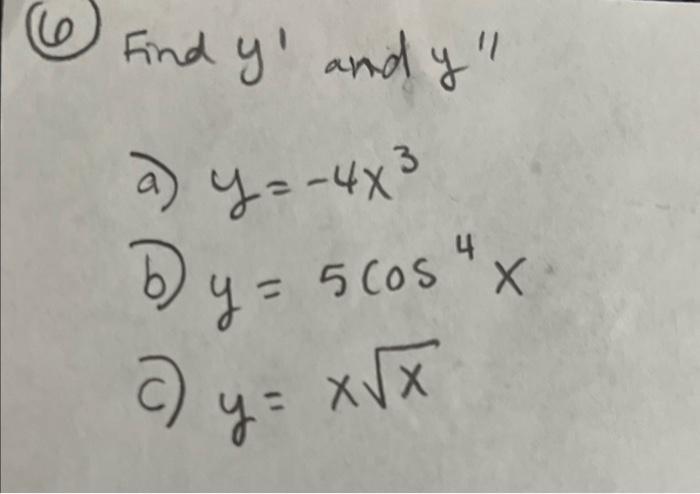 ⑥ Find y' and y"
a) y = -4x³
b) y = 5 cos⁴ x
c) y = x√x